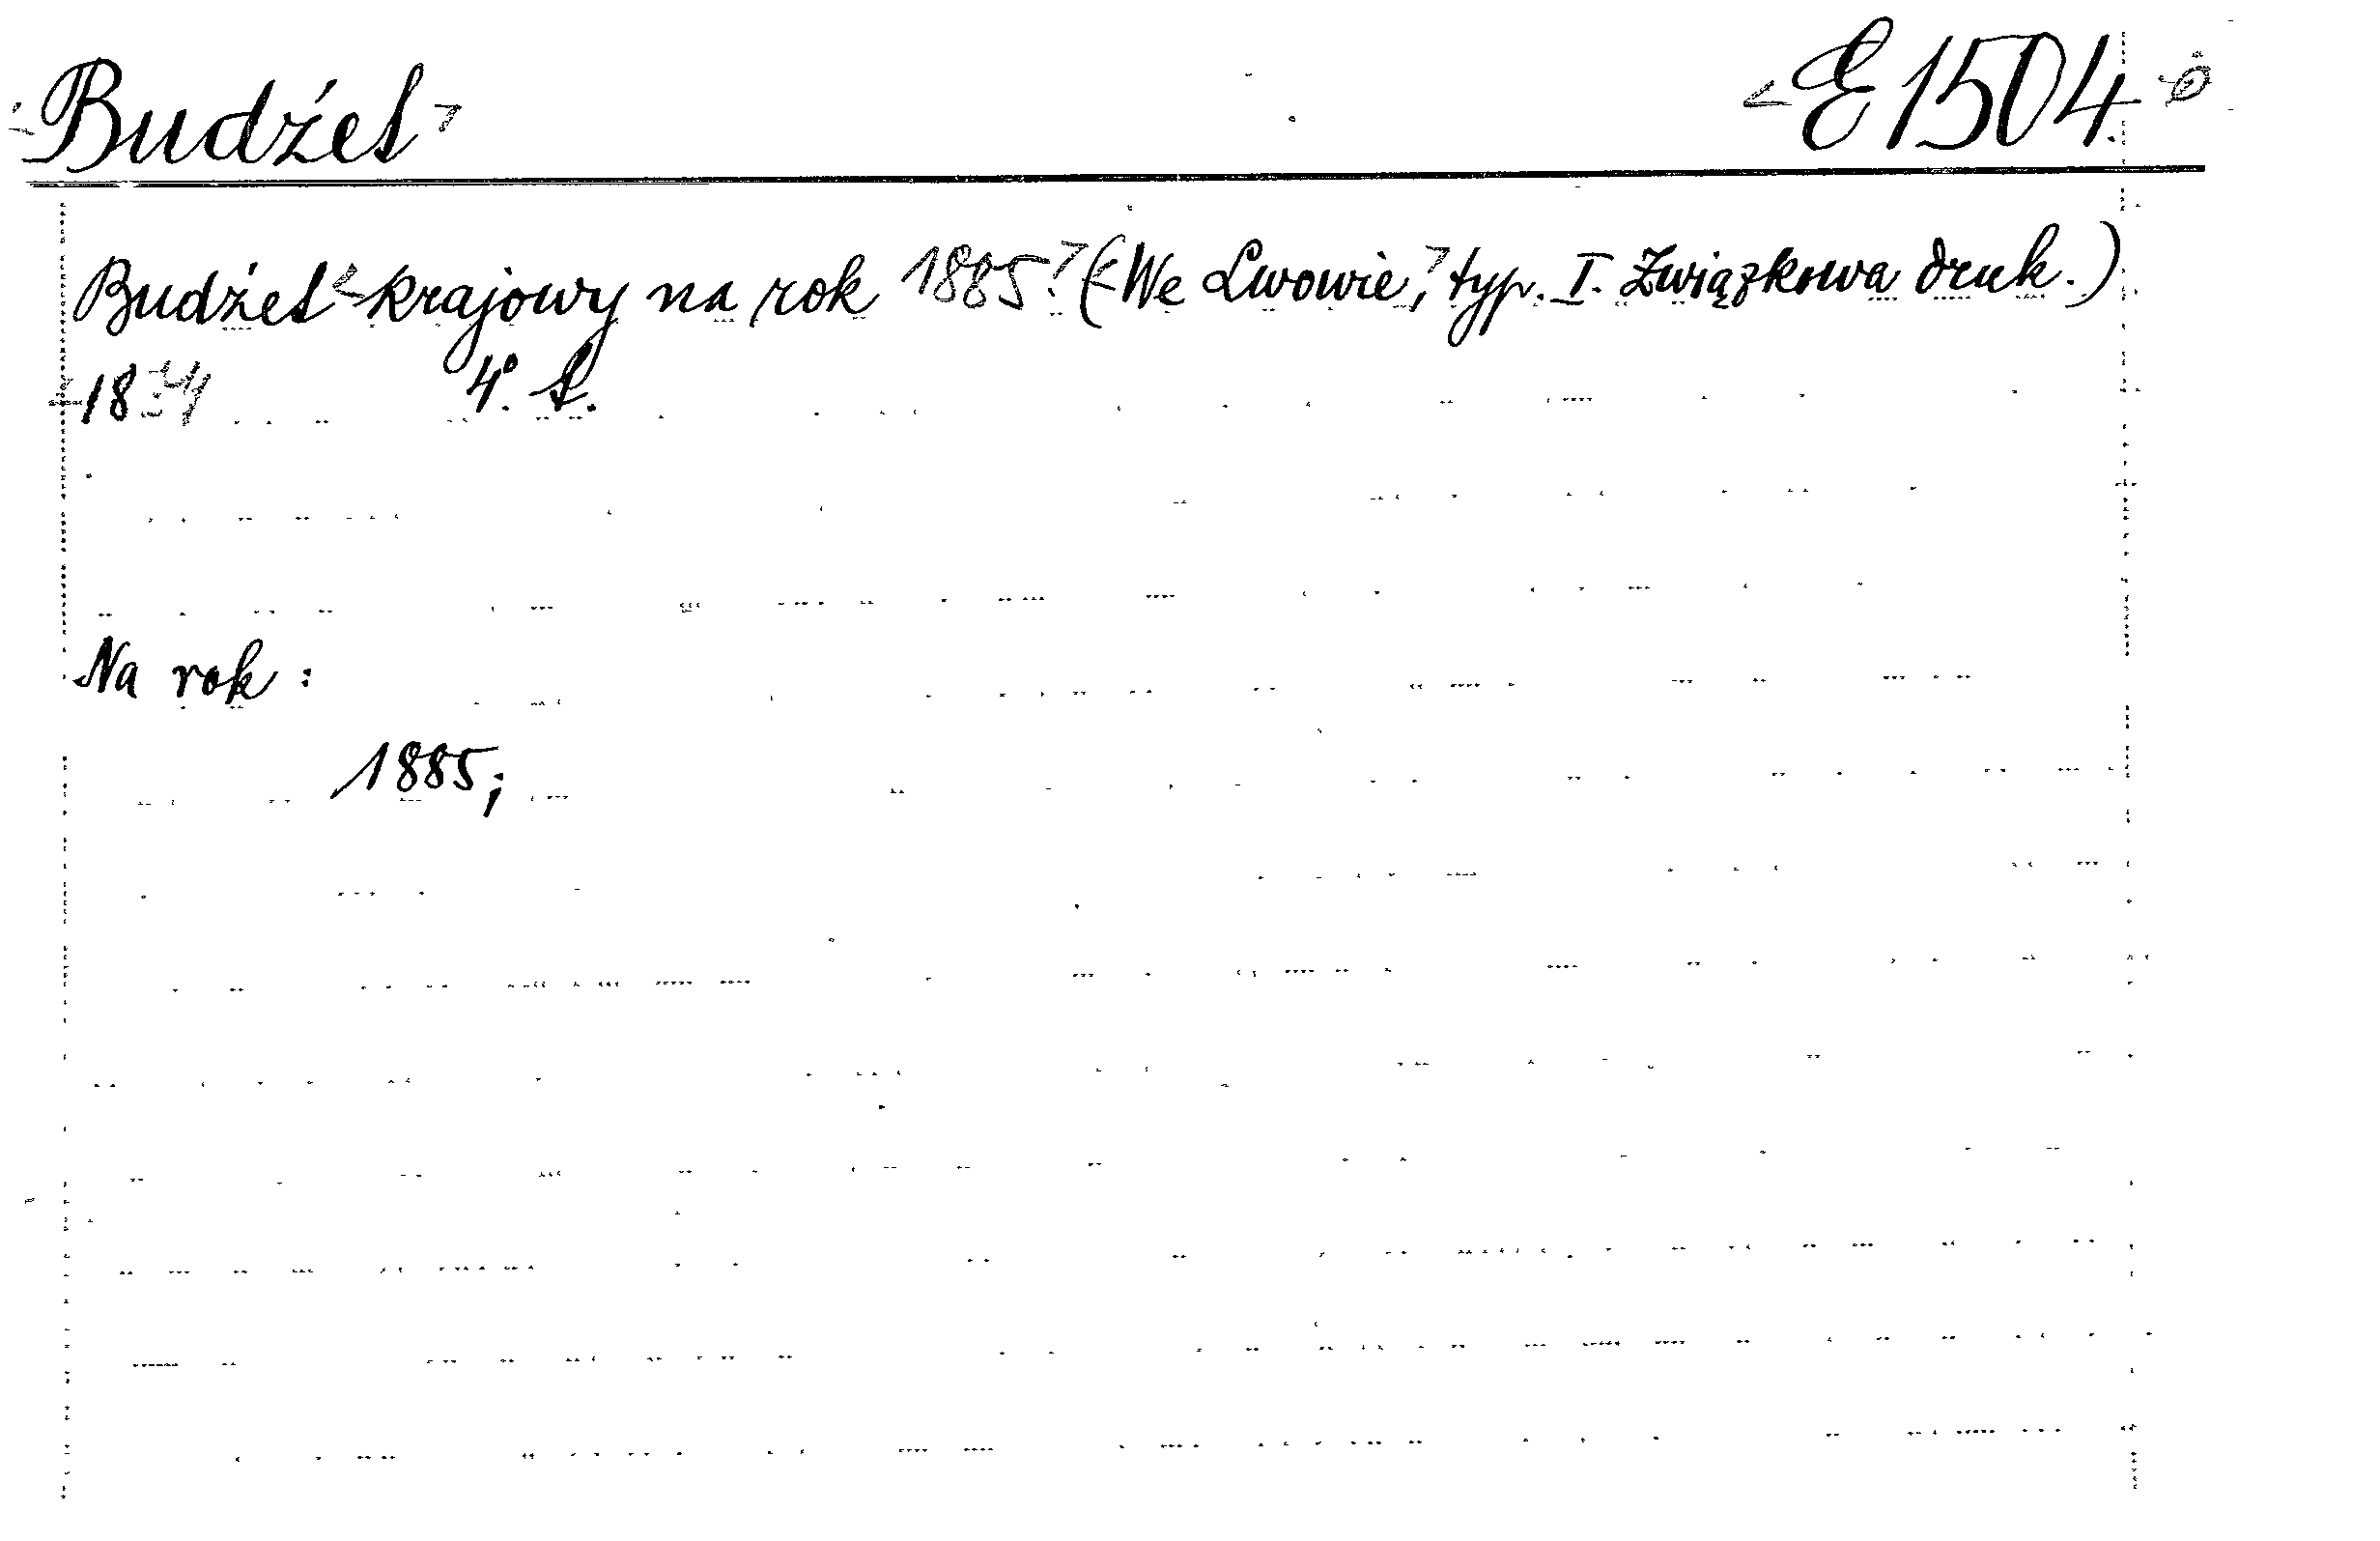 Budźet E 1504.
Budźet krajowy na rok 1885. (We Lwowie, typ. I. Związkowa druk.)
4º. S.
Na rok:
1885;